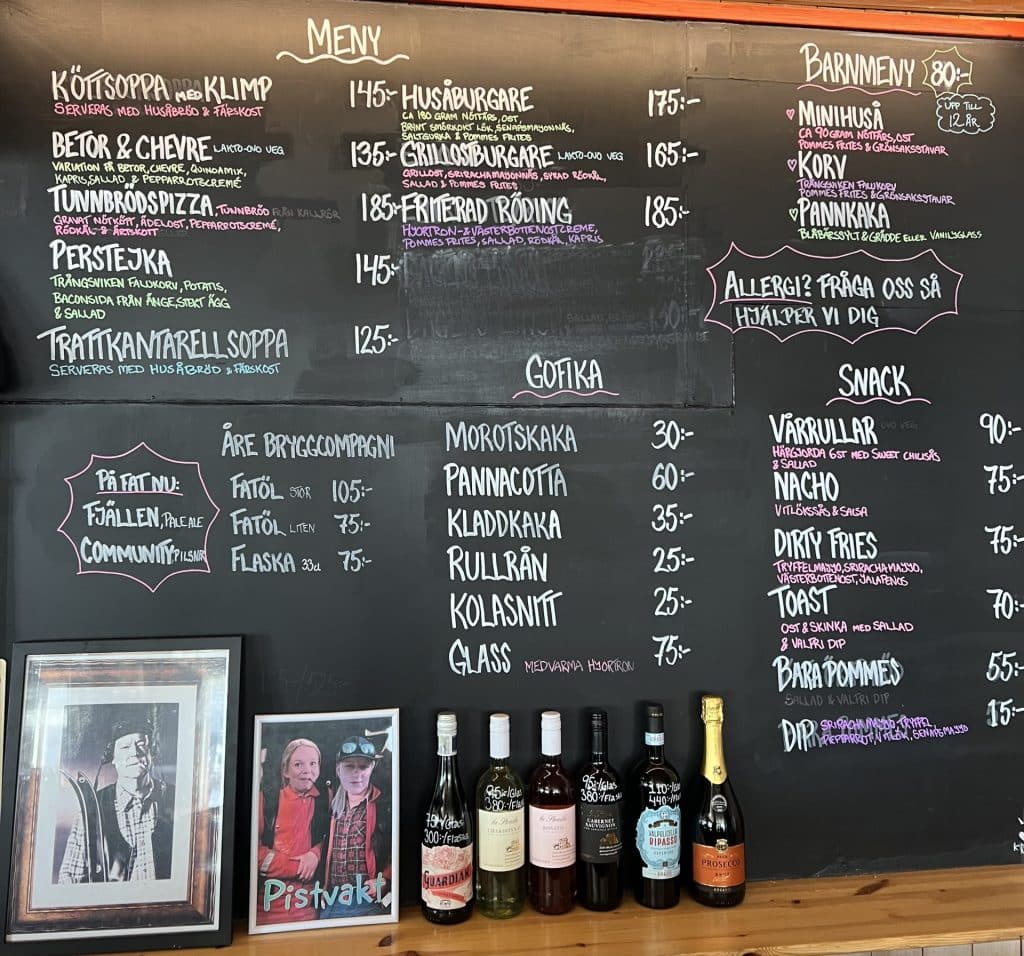 MENY
KÖTTSOPPA MED KLIMP 145:-
SERVERAS MED HUSÅBRÖD & FÄRSKOST
BETOR & CHEVRE LAKTO-OVO VEG 135:-
VARIATION PÅ BETOR, CHEVRE, QUINOAMIX,
KAPRIS, SALLAD & PEPPARROTSCREMÉ
TUNNBRÖDSPIZZA, TUNNBRÖD FRÅN KALLRÖR 185:-
GRAVAT NÖTKÖTT, ÄDELOST, PEPPARROTSCREMÉ,
RÖDKÅL & ÄRTSKOTT
PERSTEJKA 145:-
TRÅNGSVIKEN FALUKORV, POTATIS,
BACONSIDA FRÅN ÅNGE, STEKT ÄGG
& SALLAD
TRATTKANTARELLSOPPA 125:-
SERVERAS MED HUSÅBRÖD & FÄRSKOST
HUSÅBURGARE 175:-
CA 180 GRAM NÖTFÄRS, OST,
BRYNT SMÖRKOKT LÖK, SENAPSMAYONNÄS,
SALTGURKA & POMMES FRITES
GRILLOSTBURGARE LAKTO-OVO VEG 165:-
GRILLOST, SRIRACHAMAYONNÄS, SYRAD RÖDKÅL,
SALLAD & POMMES FRITES
FRITERAD RÖDING 185:-
HJORTRON- & VÄSTERBOTTENOSTCREME,
POMMES FRITES, SALLAD, RÖDKÅL, KAPRIS
BARNMENY 80:-
UPP TILL
12 ÅR
MINIHUSÅ
CA 90 GRAM NÖTFÄRS, OST
POMMES FRITES & GRÖNSAKSSTAVAR
KORV
TRÅNGSVIKEN FALUKORV
POMMES FRITES & GRÖNSAKSSTAVAR
PANNKAKA
BLÅBÄRSSYLT & GRÄDDE ELLER VANILJGLASS
ALLERGI? FRÅGA OSS SÅ
HJÄLPER VI DIG
GOFIKA
MOROTSKAKA 30:-
PANNACOTTA 60:-
KLADDKAKA 35:-
RULLRÅN 25:-
KOLASNITT 25:-
GLASS MED VARMA HJORTRON 75:-
PÅ FAT NU:
FJÄLLEN, PALE ALE
COMMUNITY, PILSNER
ÅRE BRYGGCOMPAGNI
FATÖL STOR 105:-
FATÖL LITEN 75:-
FLASKA 33cl 75:-
SNACK
VÅRRULLAR OVO VEG 90:-
HÄRGJORDA 6ST MED SWEET CHILISÅS
& SALLAD
NACHO 75:-
VITLÖKSSÅS & SALSA
DIRTY FRIES 75:-
TRYFFELMAJJO, SRIRACHAMAJJO,
VÄSTERBOTTENOST, JALAPENOS
TOAST 70:-
OST & SKINKA MED SALLAD
& VALFRI DIP
BARA POMMES 55:-
SALLAD & VALFRI DIP
DIP SRIRACHAMAJJO, TRYFFEL 15:-
PEPPARROT, VITLÖK, SENAPSMAJJO
Pistvakt
300:-/Flaska
GUARDIAN
95:-/Glas
380:-/Flaska
CHARDONNAY
95:-/Glas
380:-/Flaska
CABERNET
SAUVIGNON
110:-/Glas
440:-/Flaska
VALPOLICELLA
RIPASSO
PROSECCO